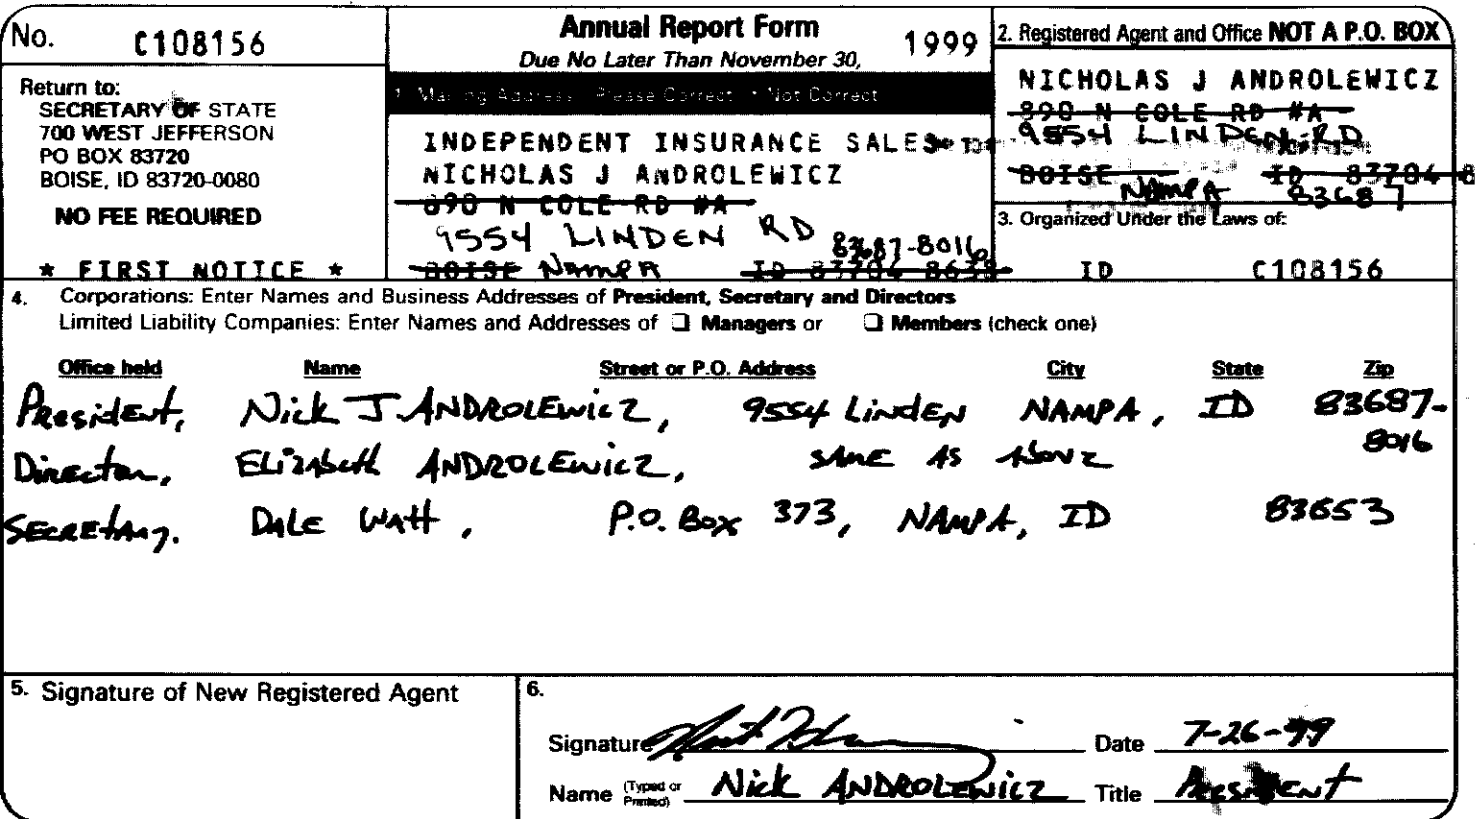 No. C108156
Return to:
SECRETARY OF STATE
700 WEST JEFFERSON
PO BOX 83720
BOISE, ID 83720-0080
NO FEE REQUIRED
* FIRST NOTICE *
Annual Report Form 1999
Due No Later Than November 30,
1. Mailing Address Please Correct Not Correct
INDEPENDENT INSURANCE SALES
NICHOLAS J ANDROLEWICZ
890 N COLE RD #A
9554 LINDEN RD
83687-8016
BOISE NAMPA ID 83704-8638
2. Registered Agent and Office NOT A P.O. BOX
NICHOLAS J ANDROLEWICZ
890 N COLE RD #A
9554 LINDEN RD
BOISE ID 83704-8
NAMPA 83687
3. Organized Under the Laws of:
ID C108156
4. Corporations: Enter Names and Business Addresses of President, Secretary and Directors
Limited Liability Companies: Enter Names and Addresses of ❑ Managers or ❑ Members (check one)
Office held Name Street or P.O. Address City State Zip
President, Nick J. ANDROLEWICZ, 9554 LINDEN NAMPA, ID 83687-
8016
Director, Elizabeth ANDROLEWICZ, SAME AS Above
SECRETARY. DALE WATT, P.O. Box 373, NAMPA, ID 83653
5. Signature of New Registered Agent
6.
Signature Date 7-26-99
Name (Typed or Printed) Nick ANDROLEWICZ Title President